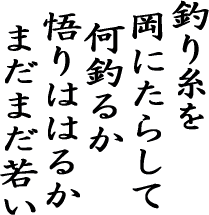 釣り糸を
岡にたらして
何釣るか
悟りははるか
まだまだ若い